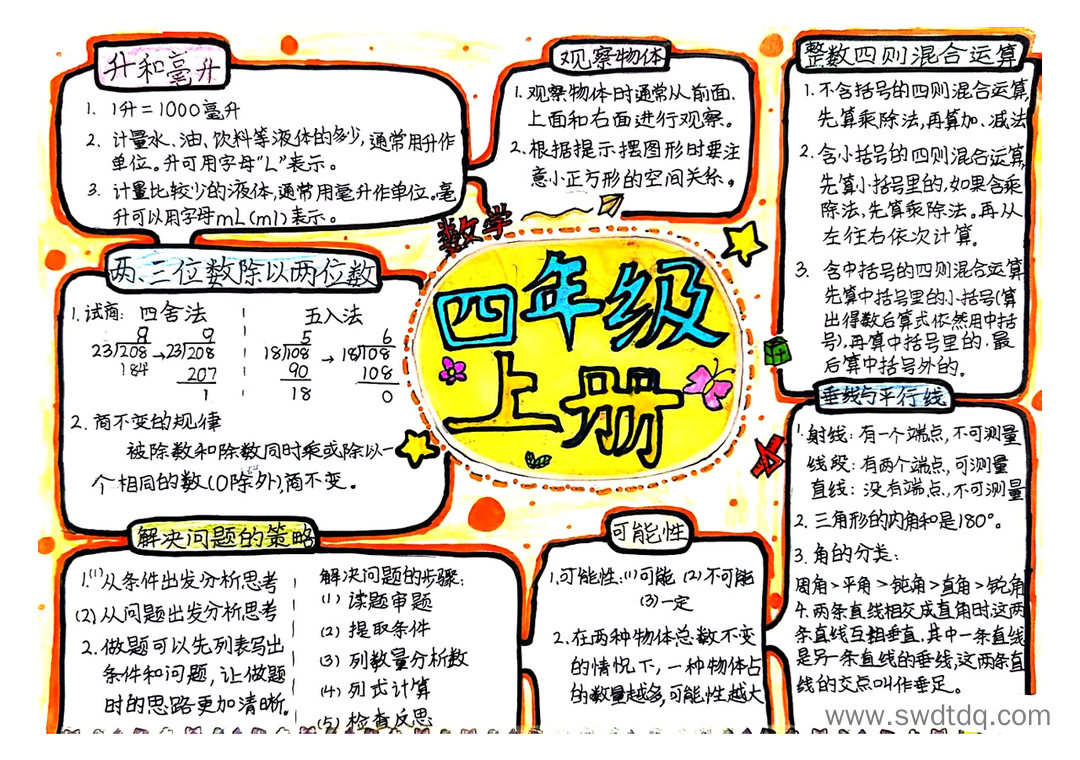 升和毫升
1. 1升=1000毫升
2. 计量水、油、饮料等液体的多少,通常用升作
单位。升可用字母“L”表示。
3. 计量比较少的液体,通常用毫升作单位。毫
升可以用字母mL(ml)表示。
观察物体
1. 观察物体时通常从前面、
上面和右面进行观察。
2. 根据提示摆图形时要注
意小正方形的空间关系。
整数四则混合运算
1. 不含括号的四则混合运算,
先算乘除法,再算加、减法
2. 含小括号的四则混合运算,
先算小括号里的,如果含乘
除法,先算乘除法。再从
左往右依次计算。
3. 含中括号的四则混合运算
先算中括号里的小括号(算
出得数后算式依然用中括
号),再算中括号里的,最
后算中括号外的。
数学
四年级
上册
两、三位数除以两位数
1. 试商: 四舍法 五入法
8 9 5 6
23208 → 23208 18108 → 18108
184 207 90 108
1 18 0
2. 商不变的规律
被除数和除数同时乘或除以一
个相同的数(0除外),商不变。
垂线与平行线
1. 射线: 有一个端点,不可测量
线段: 有两个端点,可测量
直线: 没有端点,不可测量
2. 三角形的内角和是180°。
3. 角的分类:
周角>平角>钝角>直角>锐角
4. 两条直线相交成直角时,这两
条直线互相垂直,其中一条直线
是另一条直线的垂线,这两条直
线的交点叫作垂足。
解决问题的策略
1. (1)从条件出发分析思考
(2)从问题出发分析思考
2. 做题可以先列表写出
条件和问题,让做题
时的思路更加清晰。
解决问题的步骤:
(1) 读题审题
(2) 提取条件
(3) 列数量分析数
(4) 列式计算
(5) 检查反思
可能性
1. 可能性: (1)可能 (2)不可能
(3)一定
2. 在两种物体总数不变
的情况下,一种物体占
的数量越多,可能性越大
www.swdtdq.com